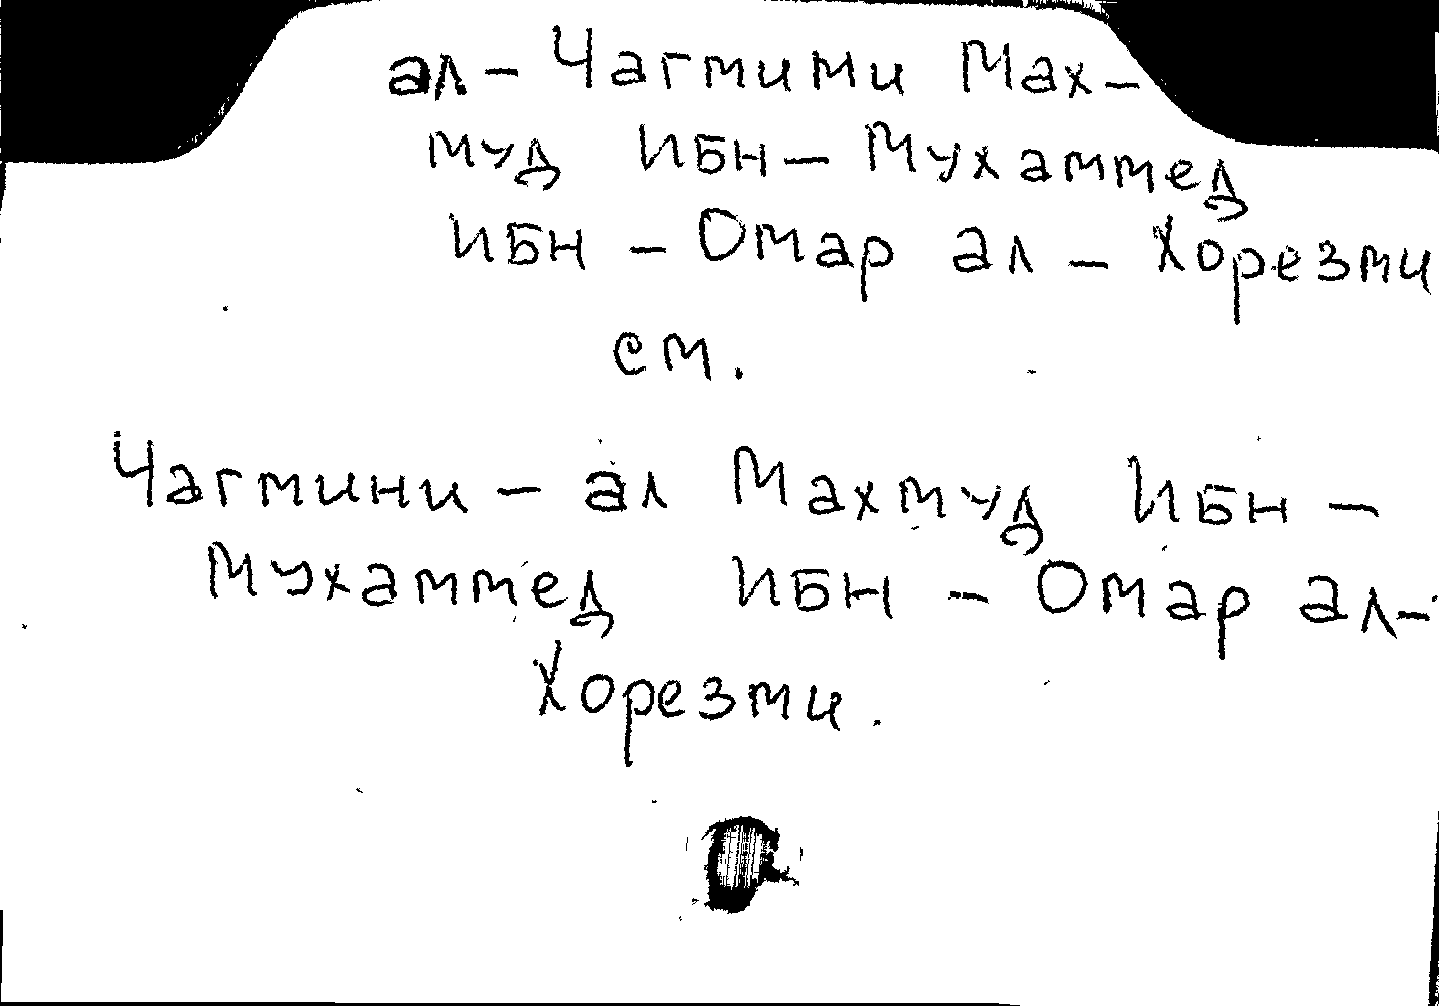 ал - Чагмими Мах-
муд ИБН - Мухаммед
ИБН - Омар ал - Хорезми
см.
Чагмини - ал Махмуд ИБН -
Мухаммед ИБН - Омар ал-
Хорезми.